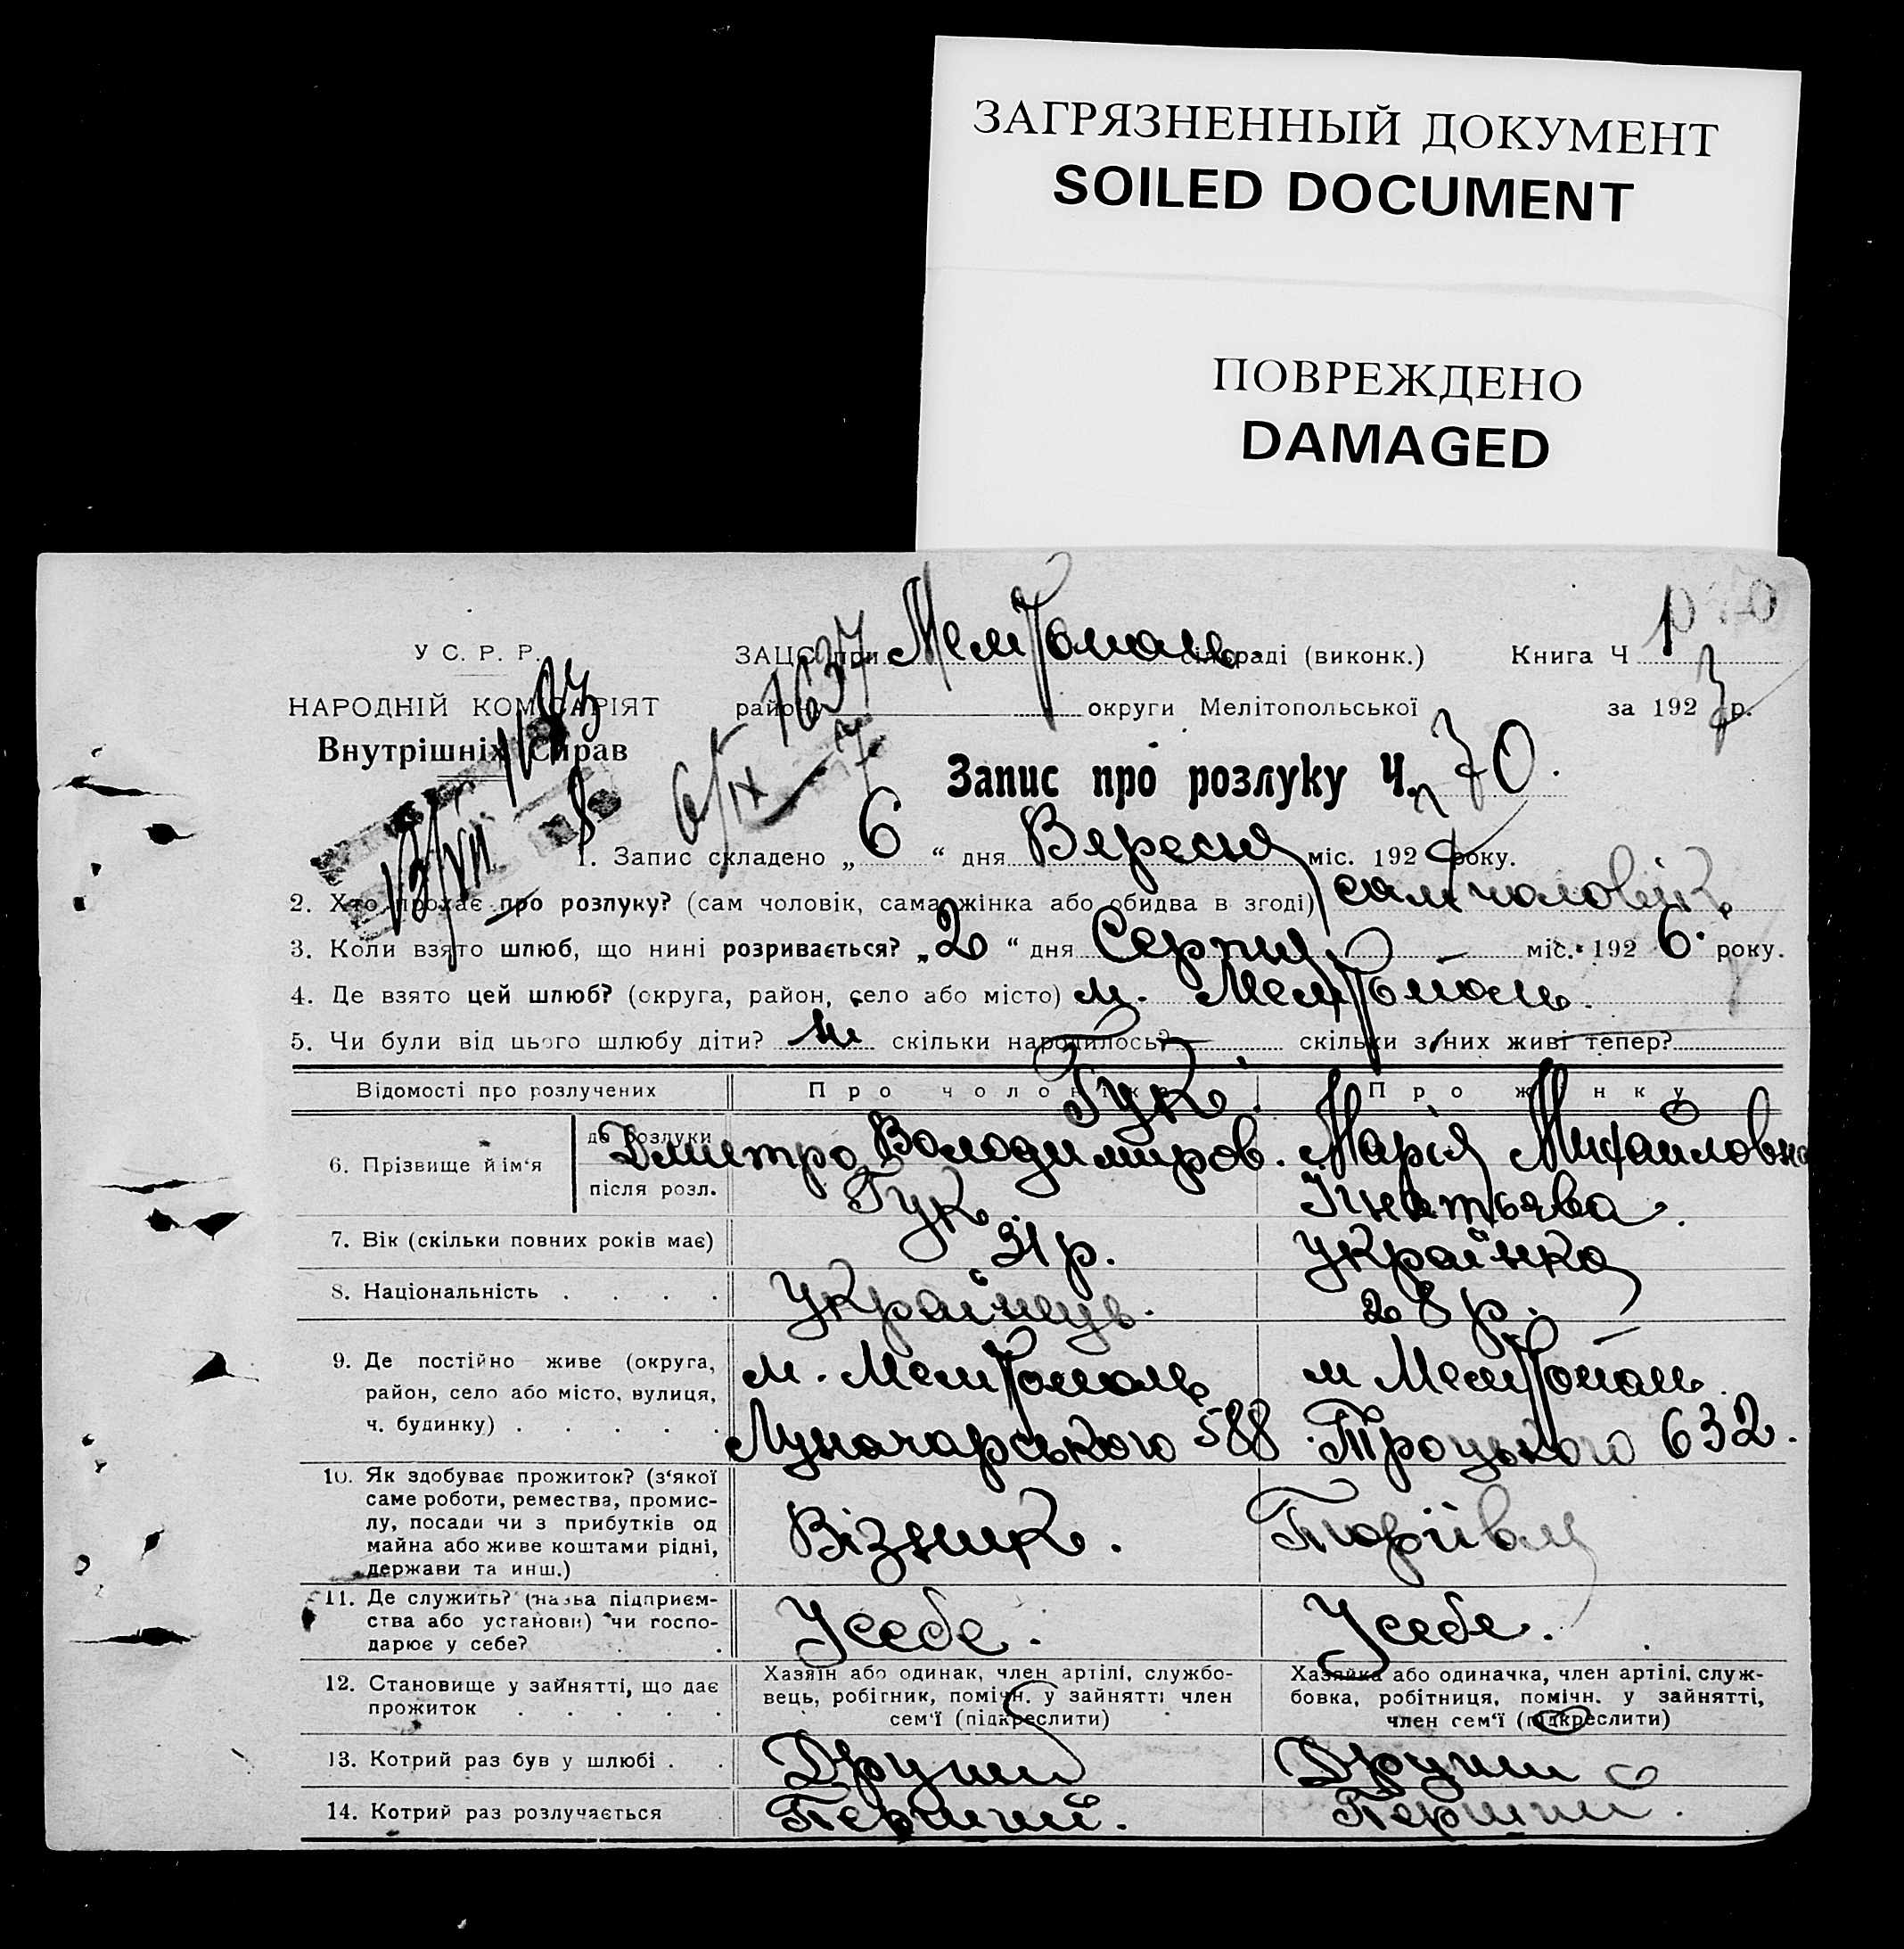 ЗАГРЯЗНЕННЫЙ ДОКУМЕНТ
SOILED DOCUMENT
ПОВРЕЖДЕНО
DAMAGED
У С. Р. Р.
НАРОДНІЙ КОМІСАРІЯТ
Внутрішніх Справ
ЗАЦС при Мелітополь сільраді (виконк.) Книга Ч 1
району округи Мелітопольської за 1927 р.
1637
6/IX 7
Запис про розлуку Ч. 70.
1. Запис складено „6“ дня Вересня міс. 1927 року.
2. Хто прохає про розлуку? (сам чоловік, сама жінка або обидва в згоді) сам чоловік
3. Коли взято шлюб, що нині розривається? „2“ дня Серпня міс. 1926 року.
4. Де взято цей шлюб? (округа, район, село або місто) м. Мелітополь.
5. Чи були від цього шлюбу діти? ні скільки народилось? скільки з них живі тепер?
Відомості про розлучених Про чоловіка Про жінку
6. Прізвище й ім‘я до розлуки Гук Дмитро Володимиров. Марія Михайловна
після розл. Гук. Ігнатьєва.
7. Вік (скільки повних років має) 31 р. Українка
8. Національність . . . . Українець. 28 р.
9. Де постійно живе (округа, район, село або місто, вулиця, ч. будинку) . . . . .
м. Мелітополь м Мелітополь.
Луначарського 588 Троцького 632.
10. Як здобуває прожиток? (з‘якої саме роботи, ремества, промислу, посади чи з прибутків од майна або живе коштами рідні, держави та инш.)
Візник.
11. Де служить? (назва підприємства або установи) чи господарює у себе? . .
У себе. У себе.
12. Становище у зайнятті, що дає прожиток . . . . .
Хазяїн або одинак, член артілі, службовець, робітник, помічн. у зайнятті член сем‘ї (підкреслити)
Хазяйка або одиначка, член артілі, службовка, робітниця, помічн. у зайнятті, член сем‘ї (підкреслити)
13. Котрий раз був у шлюбі . . Другий Другий
14. Котрий раз розлучається . Перший. Перший.